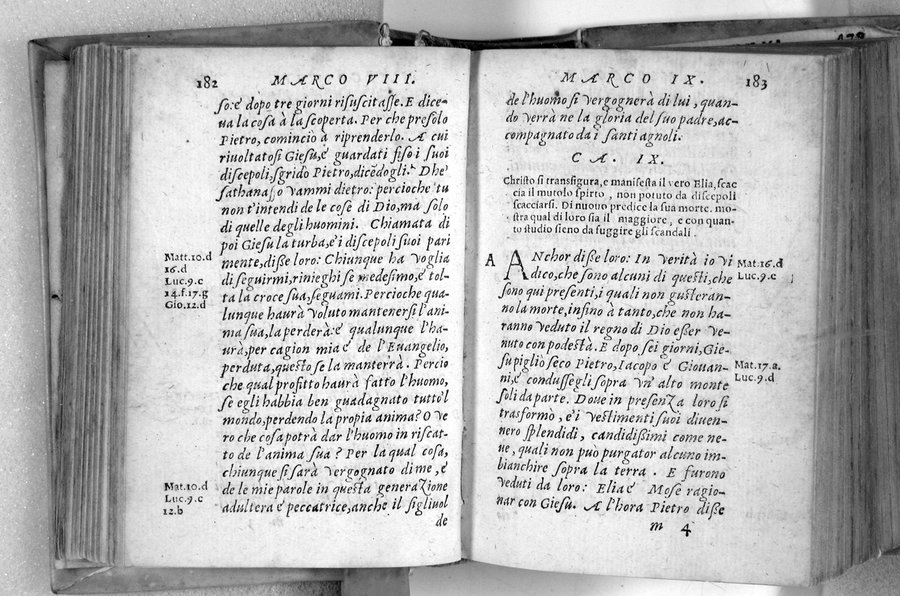 182 MARCO VIII.
so: e dopo tre giorni risuscitasse. E dice-
ua la cosa à la scoperta. Per che presolo
Pietro, cominciò à riprenderlo. A cui
riuoltatosi Giesu, e guardati fiso i suoi
discepoli, sgridò Pietro, dicēdogli. Dhe
sathanasso vammi dietro: percioche tu
non t'intendi de le cose di Dio, ma solo
di quelle degli huomini. Chiamata di
poi Giesu la turba, e i discepoli suoi pari
mente, disse loro: Chiunque ha voglia
di seguirmi, rinieghi se medesimo, e tol-
ta la croce sua, seguami. Percioche qua-
lunque haurà voluto mantenersi l'ani-
ma sua, la perderà: e qualunque l'ha-
urà, per cagion mia e de l'Euangelio,
perduta, questo se la manterrà. Percio
che qual profitto haurà fatto l'huomo,
se egli habbia ben guadagnato tutto'l
mondo, perdendo la propia anima? O ve
ro che cosa potrà dar l'huomo in riscat-
to de l'anima sua? Per la qual cosa,
chiunque si sarà vergognato di me, e
de le mie parole in questa generazione
adultera e peccatrice, anche il figliuol
de
Matt.10.d
16.d
Luc.9.c
14.f.17.g
Gio.12.d
Mat.10.d
Luc.9.c
12.b
MARCO IX. 183
de l'huomo si vergognerà di lui, quan-
do verrà ne la gloria del suo padre, ac-
compagnato da i santi agnoli.
CA. IX.
Christo si transfigura, e manifesta il vero Elia, scac
cia il mutolo spirto, non potuto da discepoli
scacciarsi. Di nuouo predice la sua morte. mo-
stra qual di loro sia il maggiore, e con quan-
to studio sieno da fuggire gli scandali.
A ANchor disse loro: In verità io vi
dico, che sono alcuni di questi, che
sono qui presenti, i quali non gusteran-
no la morte, infino à tanto, che non ha-
ranno veduto il regno di Dio esser ve-
nuto con podestà. E dopo sei giorni, Gie-
su pigliò seco Pietro, Iacopo e Giouan-
ni, e condussegli sopra vn' alto monte
soli da parte. Doue in presenza loro si
trasformò, e i vestimenti suoi diuen-
nero splendidi, candidissimi come ne-
ue, quali non può purgator alcuno im-
bianchire sopra la terra. E furono
veduti da loro: Elia e Mose ragio-
nar con Giesu. A l'hora Pietro disse
m 4
Mat.16.d
Luc.9.c
Mat.17.a.
Luc.9.d